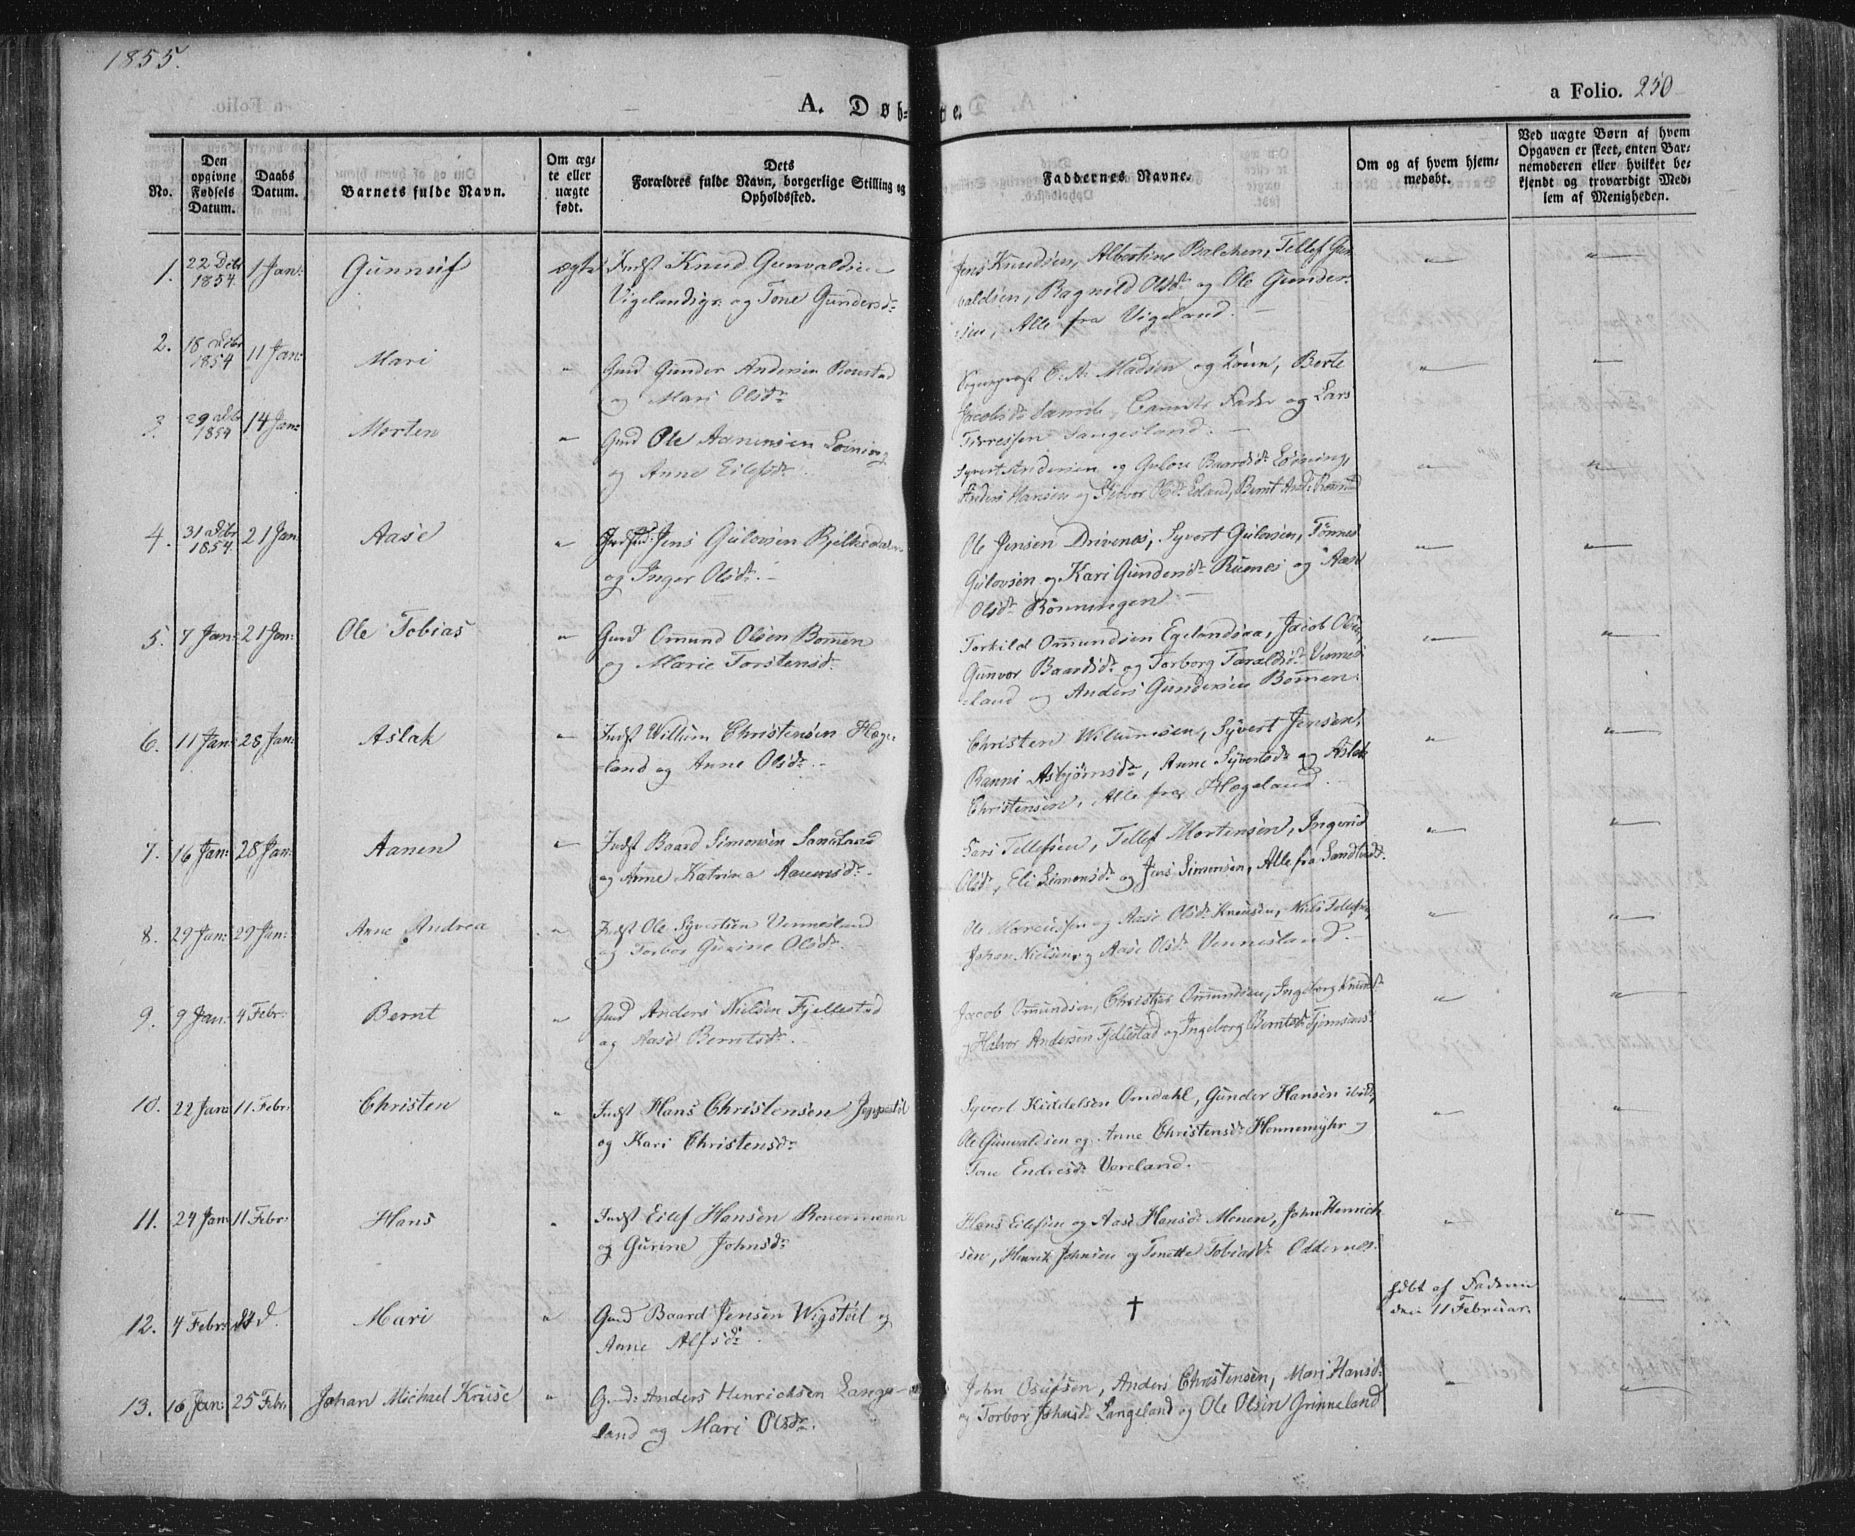 1855.
A. Døb-te.
a Folio. 250
No.
Den opgivne Fødsels Datum.
Daabs Datum.
Barnets fulde Navn.
Om ægte eller uægte født.
Dets Forældres fulde Navn, borgerlige Stilling og Opholdssted.
Faddernes Navne.
Om og af hvem hjemmedøbt.
Ved uægte Børn af hvem Opgaven er skeet, enten Barnemoderen eller hvilket bekjendt og troværdigt Medlem af Menigheden.
1. 22 Debr 1854. 1 Jan: Gunnuf ægte Indst Knud Gunvaldsen
Vigelandsgr: og Tone Gundersdr
Jens Knudsen, Albertine Balchen, Tellef Gun
valdsen, Ragnild Olsdr og Ole Gunder-
sen, Alle fra Vigeland.
2. 18 Debr 1854 11 Jan: Mari " Gmd Gunder Andersen Roustad
og Mari Olsdr
Sogneprest C. A. Madsen og Kone, Berte
Jacobsdr samtl:, Barnets Fader og Lars
Terressen Langesland.
3. 29 Debr 1854 14 Jan: Morten " Gmd Ole Aanensen Løining
og Anne Eilefsdr
Syvert Andersen og Gulou Baardsdr Løining,
Anders Hansen og Gunvor Olsdr Eeland, Bernt
4. 31 Debr 1854. 21 Jan Aase " Jens Gulovsen Bjelkedalen
og Inger Olsdr.
Ole Jensen Drivenes, Syvert Gulovsen, Tønnes
Gulovsen og Kari Gundersdr Ruenes og Aase
Olsdr Rønningen
5. 7 Jan: 21 Jan: Ole Tobias " Gmd Omund Olsen Bommen
og Marie Torstensdr
Torkild Omundsen Egelandsaa, Jacob Olsen,
Gunvor Baardsdr og Torborg Taraldsdr Vennes
land og Anders Gundersen Bommen.
6. 11 Jan: 28 Jan: Aslak " Indst Willum Christensen Hæge
land og Anne Olsdr.
Christen Willumsen, Syvert Jensen,
Ranni Asbjørnsdr, Anne Syvertsdr og Aslak
Christensen, Alle fra Hægeland.
7. 16 Jan: 28 Jan: Aanen " Indst Baard Simonsen Sandland
og Anne Katrina Aanensdr.
Lars Tellefsen, Tellef Mortensen, Ingerid
Olsdr, Eli Simonsdr og Jens Simonsen, Alle fra Sandland.
8. 29 Jan: 29 Jan: Anne Andrea " Indst Ole Syvertsen Vennesland
og Torbor Gurine Olsdr.
Ole Marcussen og Aase Olsdr Knausen, Niels Tellefsen,
Johan Nielsen og Aase Olsdr Vennesland.
9. 9 Jan: 4 Febr: Bernt " Gmd Anders Nielsen Fjellestad
og Aase Berntsdr.
Jacob Omundsen, Christen Omundsen, Ingeborg Knudsdr
og Halvor Andersen Fjellestad og Ingeborg Berntsdr
10. 22 Jan: 11 Febr: Christen " Indst Hans Christensen Jeppestøl
og Kari Christensdr
Syvert Kiddelsen Omdahl, Gunder Hansen ibid,
Ole Gunvaldsen og Anne Christensdr Honnemyhr og
Tone Endresdr Vareland.
11. 24 Jan: 11 Febr: Hans " Indst Eilef Hansen Rouermonen
og Gurine Johnsdr
Hans Eilefsen og Aase Hansdr Monen, John Henrich
sen, Henrik Johnsen og Tonette Tobiasdr Oddernes.
12. 4 Febr: d. Mari " Gmd Baard Jensen Wigstøl og
Anne Alfsdr
†
døbt af Faderen
den 11 Februar.
13. 16 Jan: 25 Febr: Johan Michael Kruse " Gmd: Anders Henrichsen Lange-
land og Mari Olsdr.
John Osufsen, Anders Christensen, Mari Hansdr
og Torbor Johnsdr Langeland og Ole Olsen Grinneland